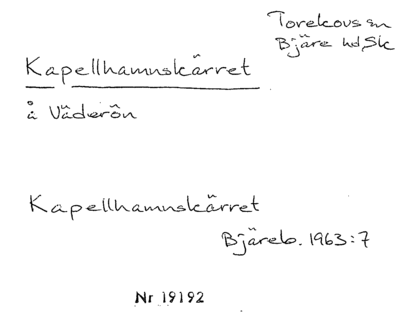 Torekovs sn
Bjäre hd, Sk
Kapellhamnskärret
å Väderön
Kapellhamnskärret
Bjäreb. 1963:7
Nr 19192